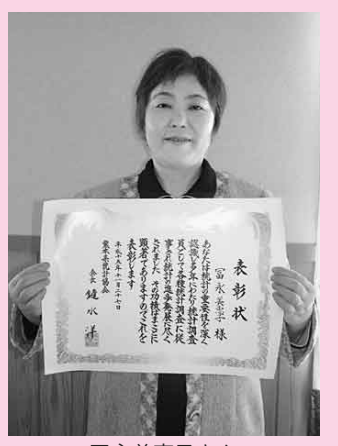 表彰状
様
あなたは統計の重要性を深く
認識し多年にわたり統計調査
員として各種統計調査に従
事され統計の進歩発展に尽く
されました その功績はまことに
顕著でありますのでこれを
表彰します
平成十五年十一月二十七日
熊本県統計協会
会長